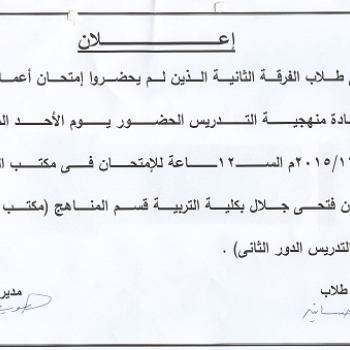 إعـــــلان
طلاب الفرقة الثانية الذين لم يحضروا إمتحان أعما
ادة منهجية التدريس الحضور يوم الأحد
٢٠١٥/١م الســـ١٢ـــاعة للإمتحان فى مكتب
ن فتحى جلال بكلية التربية قسم المناهج (مكتب
التدريس الدور الثانى) .
طلاب مدير